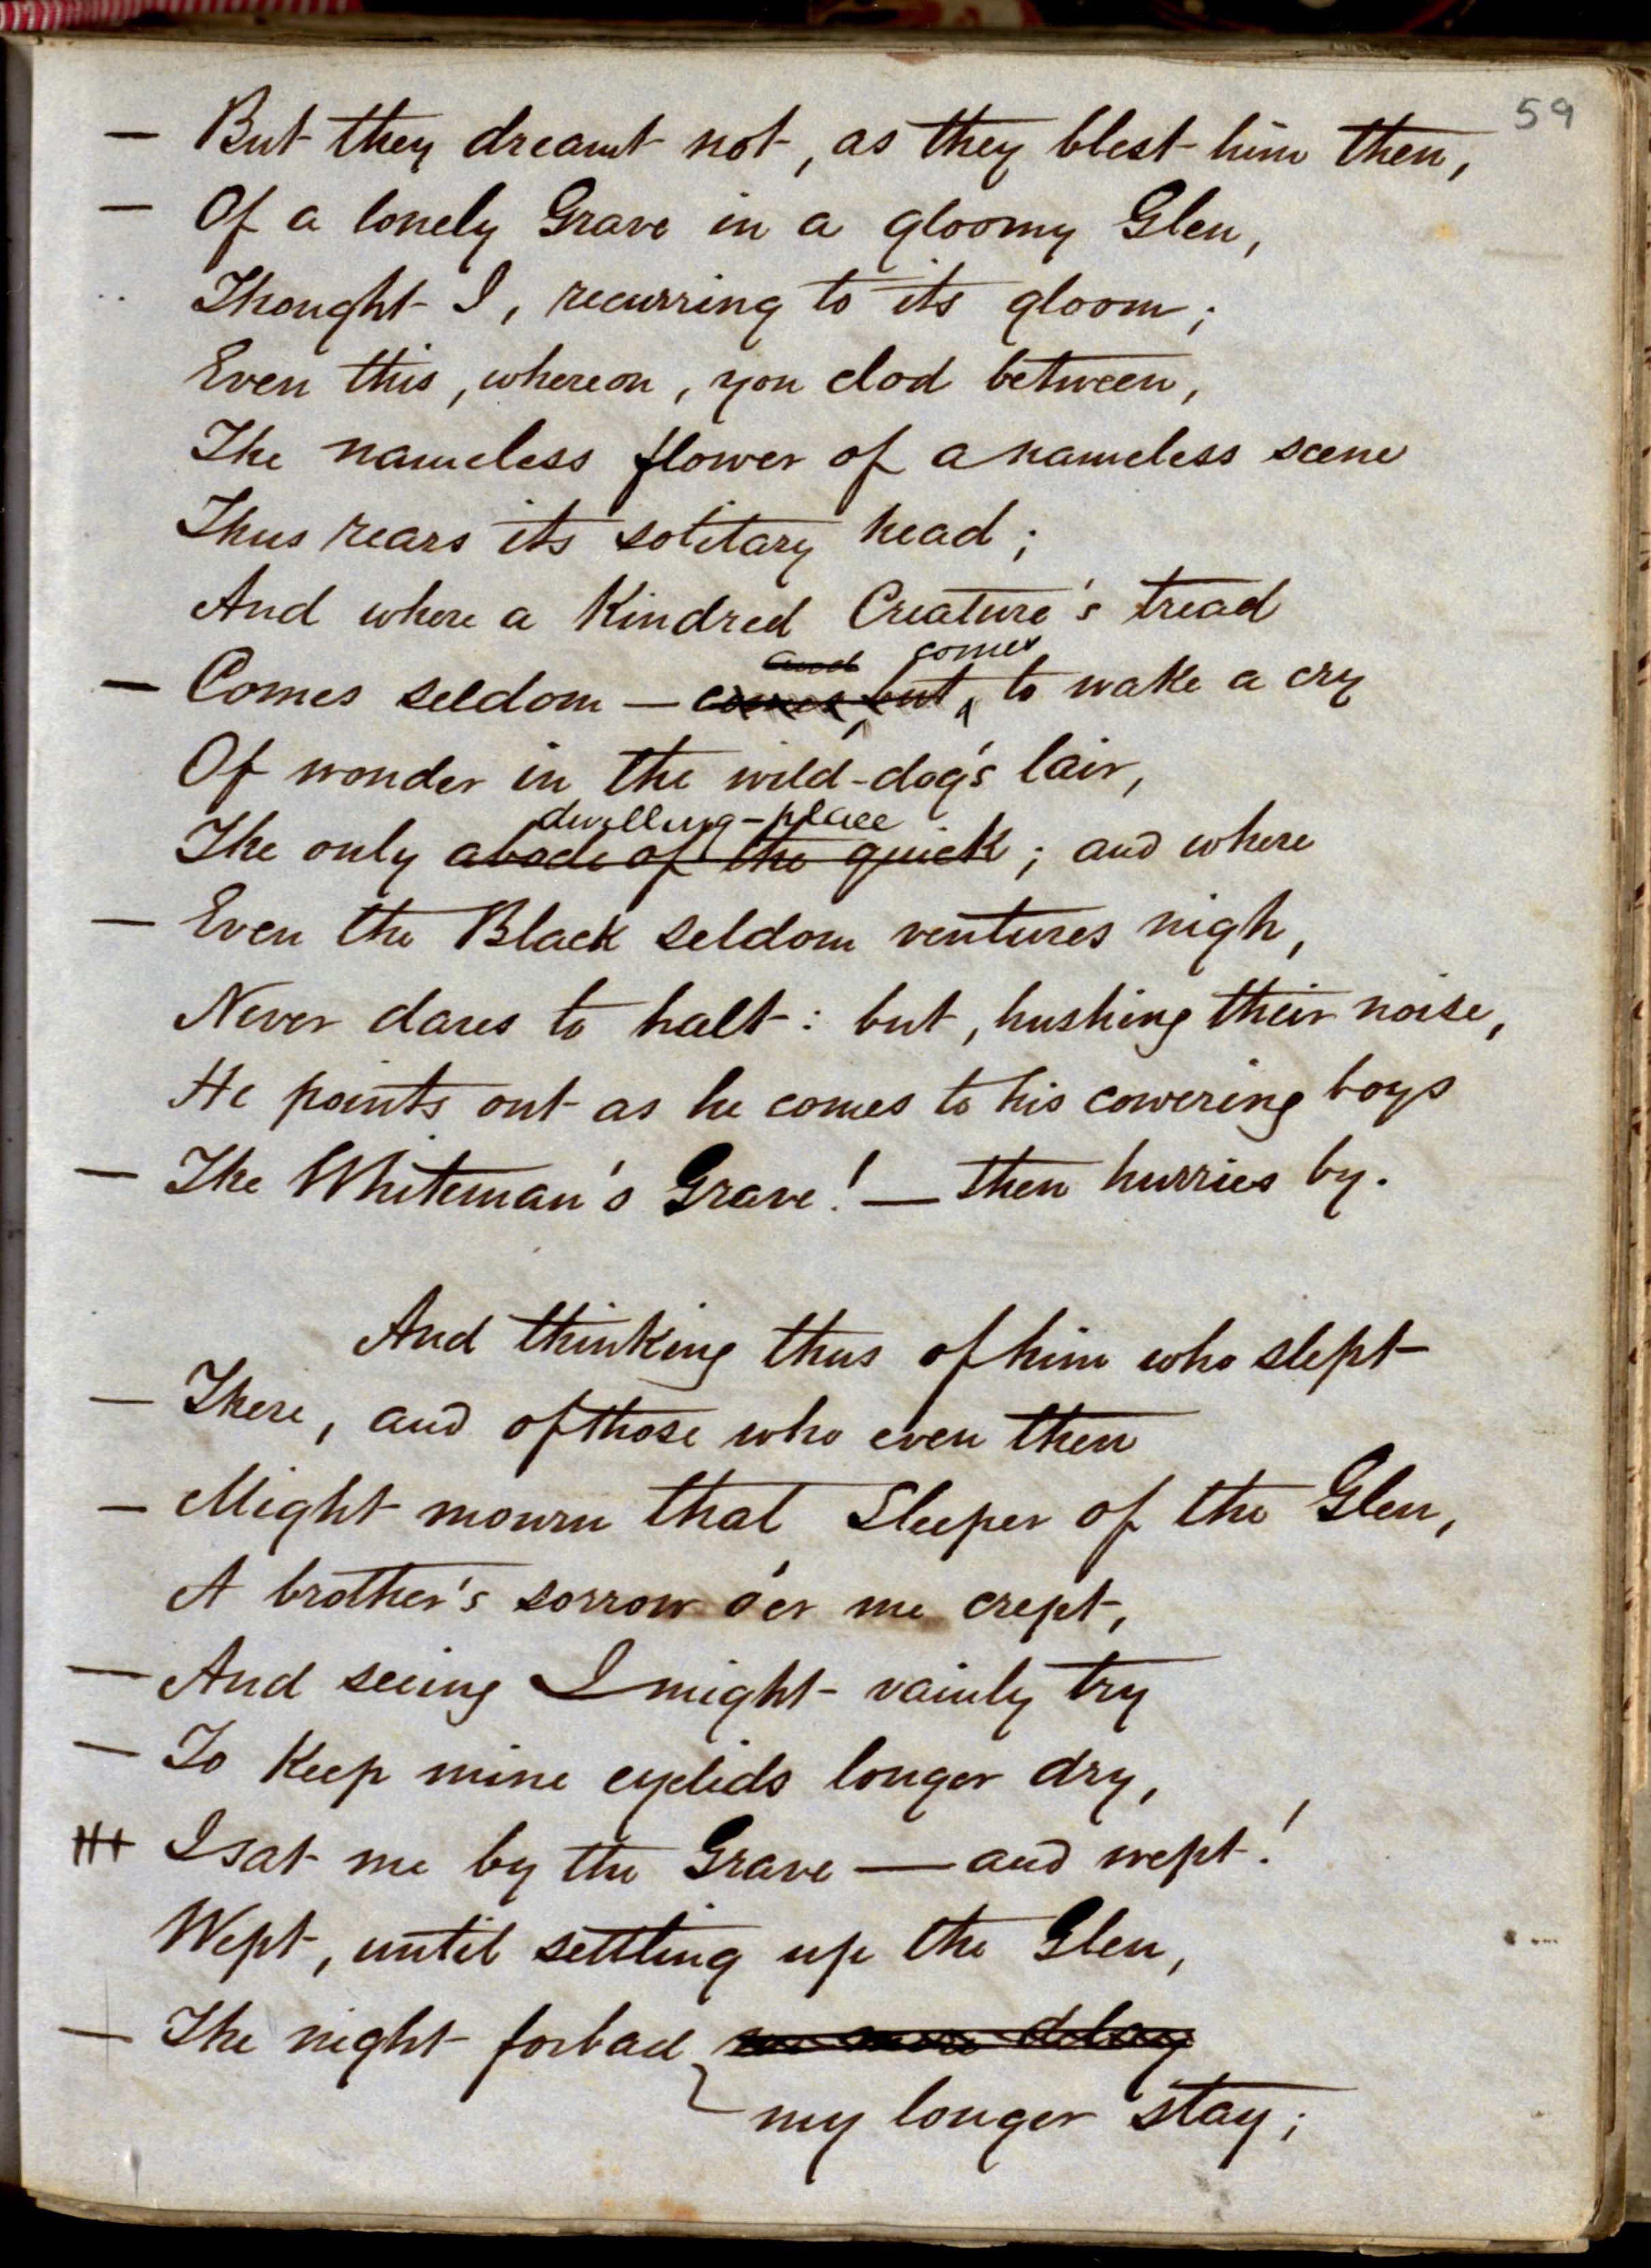 59
— But they dreamt not, as they blest him then,
— Of a lonely Grave in a gloomy Glen,
Thought I, recurring to its gloom;
Even this, whereon, yon clod between,
The nameless flower of a nameless scene
Thus rears its solitary head;
And where a Kindred Creature's tread
and comes
— Comes seldom — comes, but to wake a cry
Of wonder in the wild-dog's lair,
dwelling-place
The only abode of the quick; and where
— Even the Black seldom ventures nigh,
Never dares to halt: but, hushing their noise,
He points out as he comes to his cowering boys
— The Whiteman's Grave! — then hurries by.
And thinking thus of him who slept
— There, and of those who even then
— Might mourn that Sleeper of the Glen,
A brother's sorrow o'er me crept,
— And seeing I might vainly try
— To Keep mine eyelids longer dry,
I sat me by the Grave — and wept!
Wept, until settling up the Glen,
— The night forbad more delay
my longer stay;